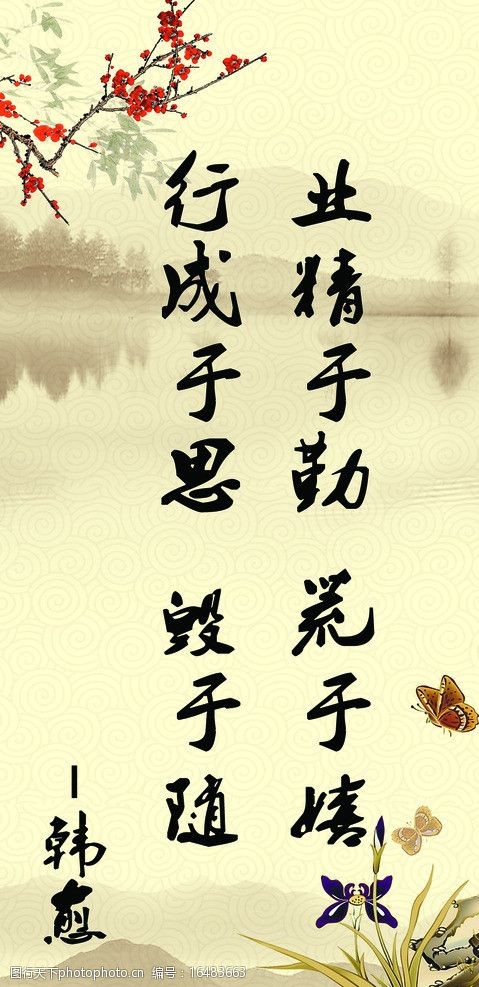 业精于勤 荒于嬉
行成于思 毁于随
－韩愈
图行天下photophoto.cn 编号：16483663